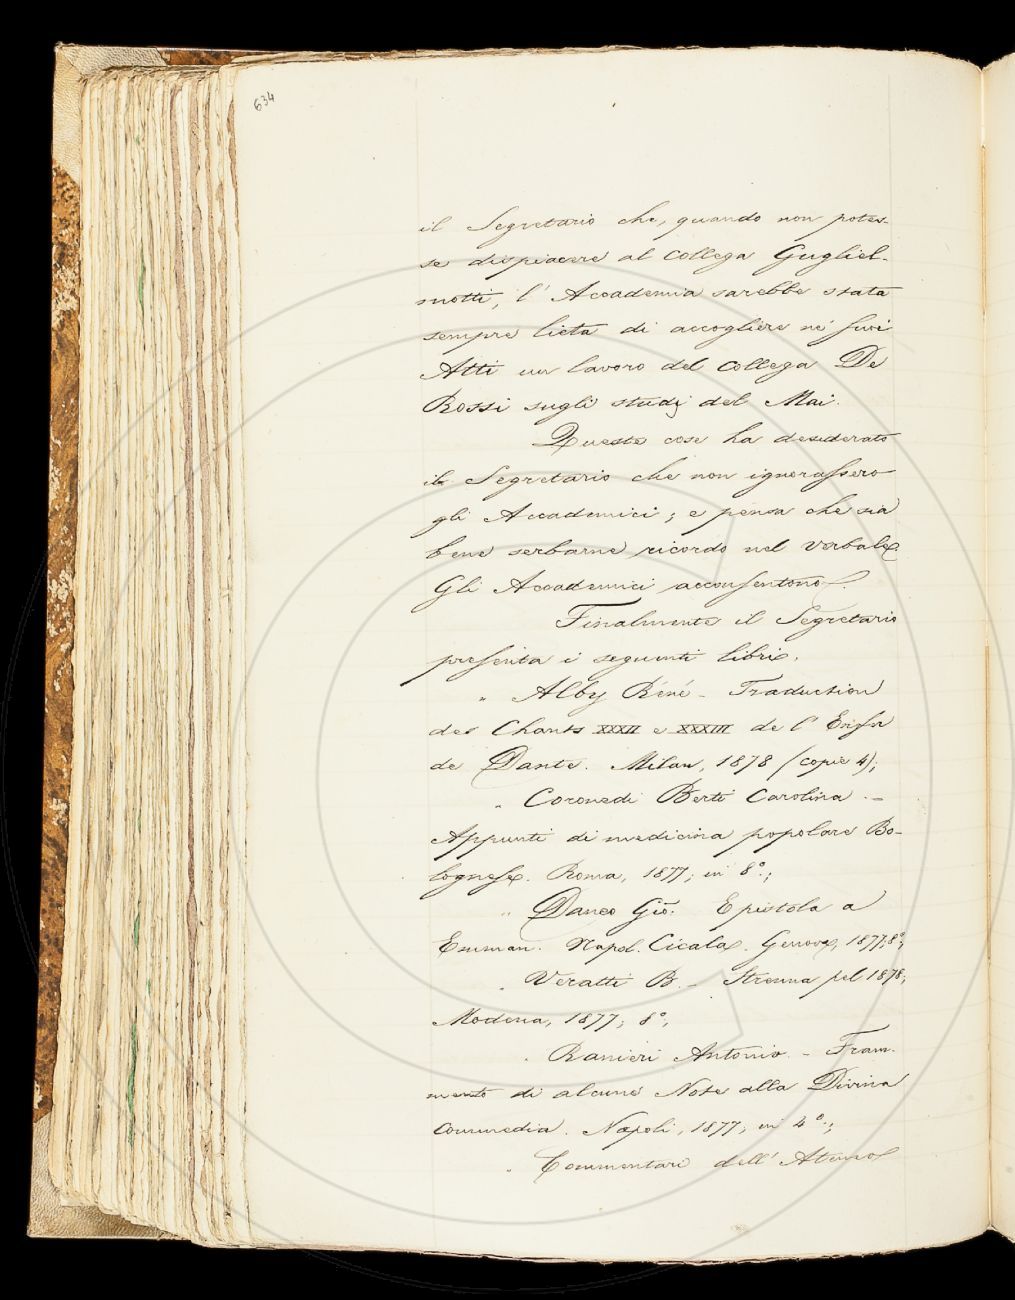 634
il Segretario che, quando non potes-
se dispiacere al collega Gugliel-
motti, l' Accademia sarebbe stata
sempre lieta di accogliere ne' suoi
Atti un lavoro del collega De
Rossi sugli studj del Mai.
Queste cose ha desiderato
il Segretario che non ignorassero
gli Accademici; e pensa che sia
bene serbarne ricordo nel verbale.
Gli Accademici acconsentono.
Finalmente il Segretario
presenta i seguenti libri.
" Alby Réné - Traduction
des Chants XXXII e XXXIII de l'
de Dante. Milan, 1878 (copie 4);
" Coronedi Berti Carolina. -
Appunti di medicina popolare Bo-
lognese. Roma, 1877; in 8º.;
" Daneo Gio: Epistola a
Emman. Napol. Cicala. Genova, 1877; 8º;
" Veratti B. - Strenna pel 1878;
Modena, 1877; 8º;
" Ranieri Antonio. - Fram-
mento di alcune Note alla Divina
Commedia. Napoli, 1877; in 4º.;
" Commentari dell' Ateneo